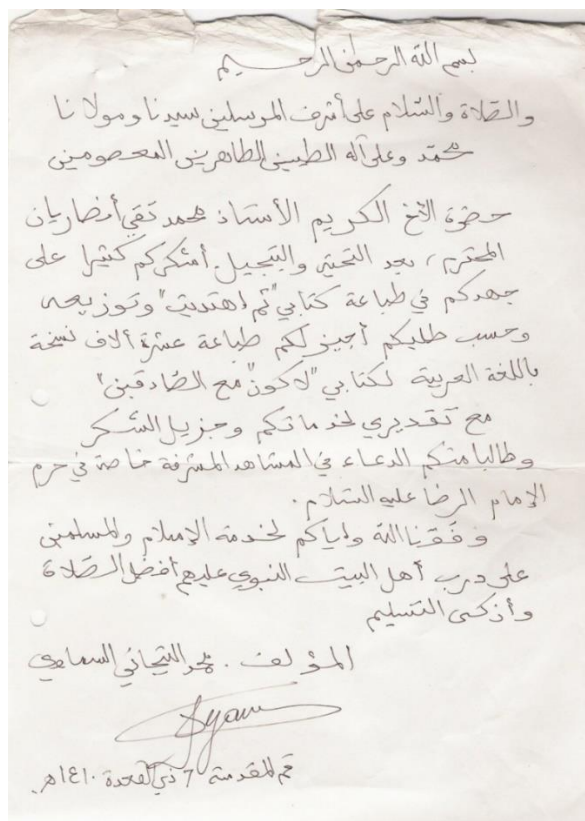 بسم الله الرحمن الرحيم
والصّلاة والسّلام على أشرف المرسلين سيدنا ومولانا
محمّد وعلى آله الطيبين الطاهرين المعصومين
حضرة الأخ الكريم الأستاذ محمد تقي أنصاريان
المحترم، بعد التحيّة والتبجيل. أشكركم كثيرا على
جهدكم في طباعة كتابي "ثم اهتديت" وتوزيعه
وحسب طلبكم أجيز لكم طباعة عشرة ألاف نسخة
باللغة العربية لكتابي "لأكون مع الصّادقين"
مع تقديري لخدماتكم وجزيل الشكر
وطالبا منكم الدعاء في المشاهد المشرفة خاصة في حرم
الإمام الرضا عليه السّلام.
وفقنا الله وإياكم لخدمة الإسلام والمسلمين
على درب أهل البيت النبوي عليهم أفضل الصّلاة
وأزكى التسليم
المؤلف. محمد التيجاني السماوي
قم المقدسة 7 ذي القعدة ١٤١٠هـ.